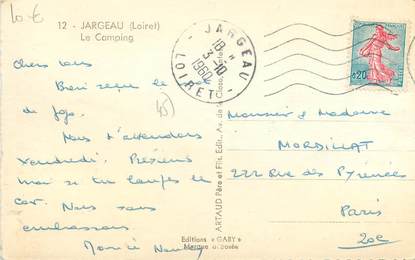 10 €
12 - JARGEAU (Loiret)
Le Camping
JARGEAU
18 H
3-10
1960
LOIRET
0,20
Chers tous
Bien reçu le
de Jojo.
45
Nous t'attendons
vendredi. Préviens
moi si tu loupes le
car. Nous vous
embrassons
Monsieur et Madame
MORDILLAT
222 Rue des Pyrénées
Paris
20e
ARTAUD Père et Fils, Edit., Av. de la Close
Editions « GABY »
Marque déposée